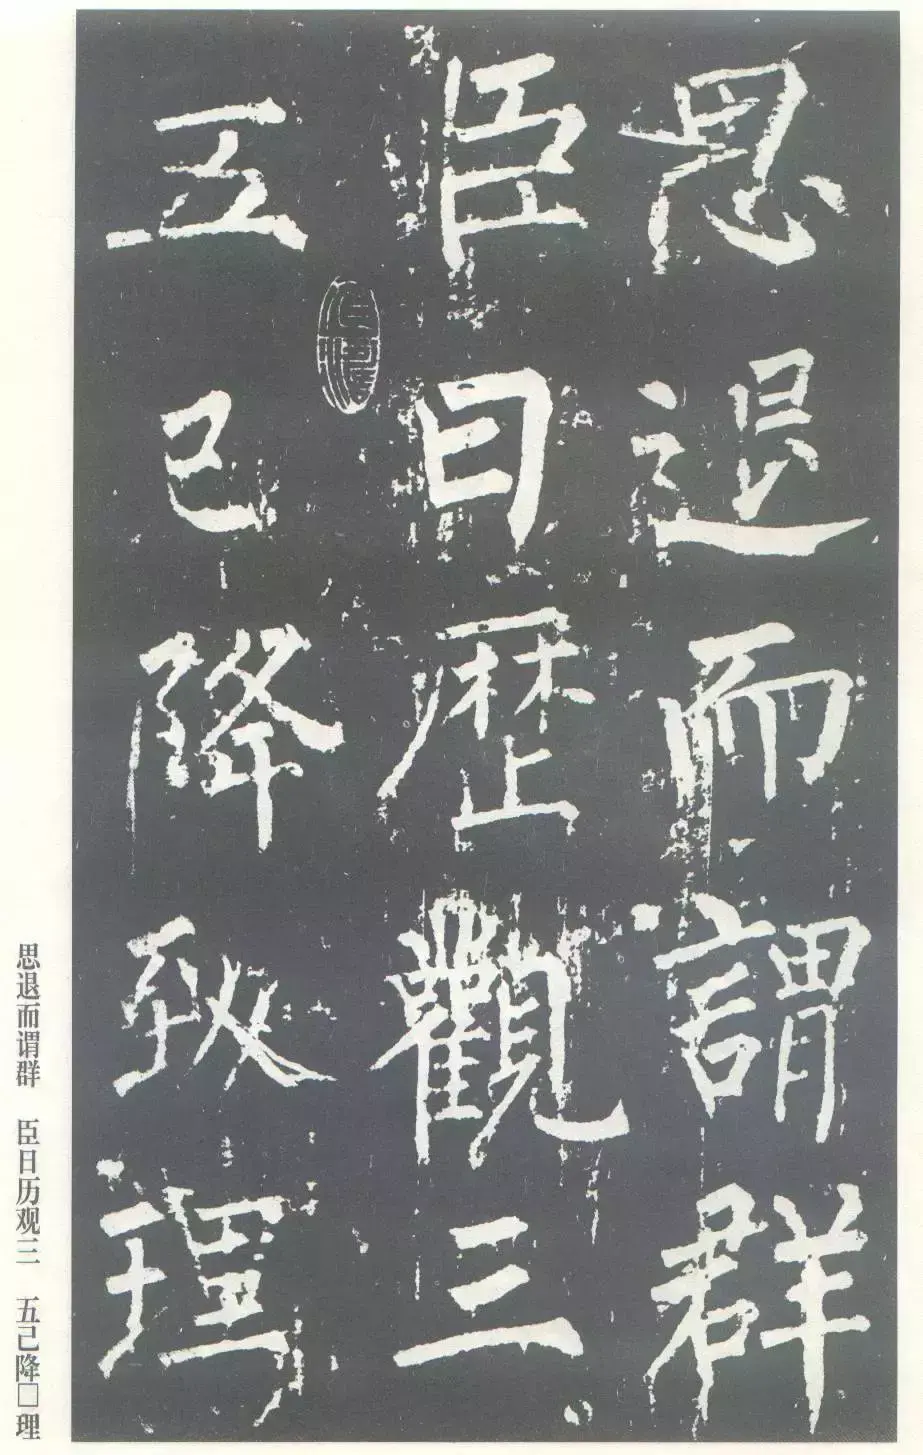 思退而謂群
臣曰歴觀三
五已降致理
思退而谓群 臣日历观三 五己降□理